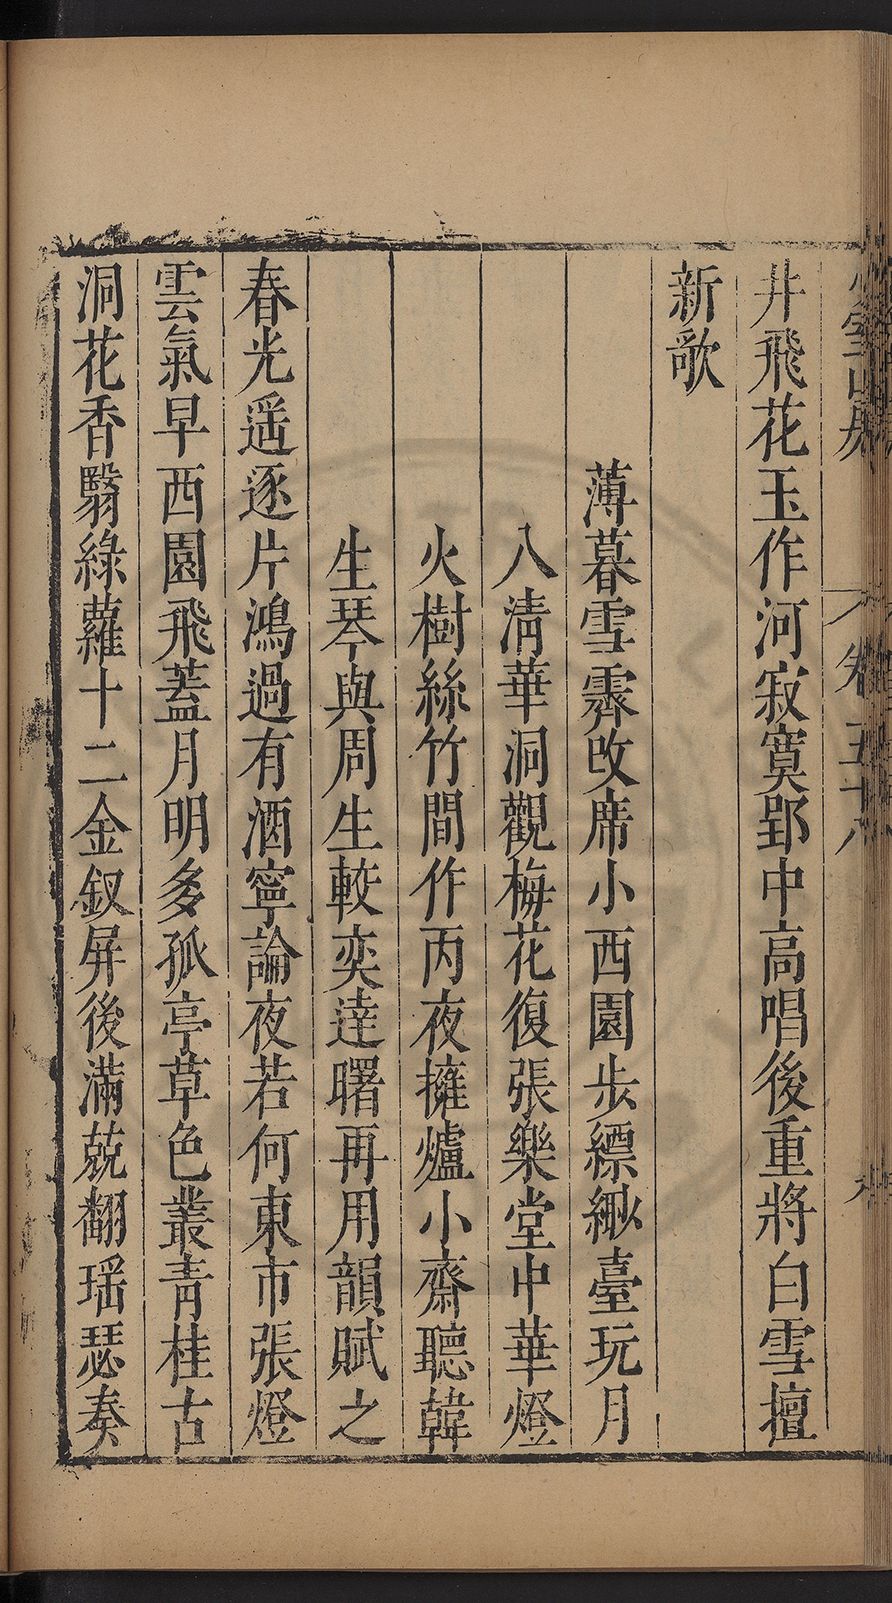 卷五十八
井飛花玉作河寂寞郢中高唱後重將白雪擅
新歌
薄暮雪霽改席小西園步縹緲臺玩月
八清華洞觀梅花復張樂堂中華燈
火樹絲竹間作丙夜擁爐小齋聽韓
生琴與周生較奕達曙再用韻賦之
春光遥逐片鴻過有酒寧論夜若何東市張燈
雲氣早西園飛蓋月明多孤亭草色叢青桂古
洞花香翳綠蘿十二金釵屏後滿兢翻瑶瑟奏